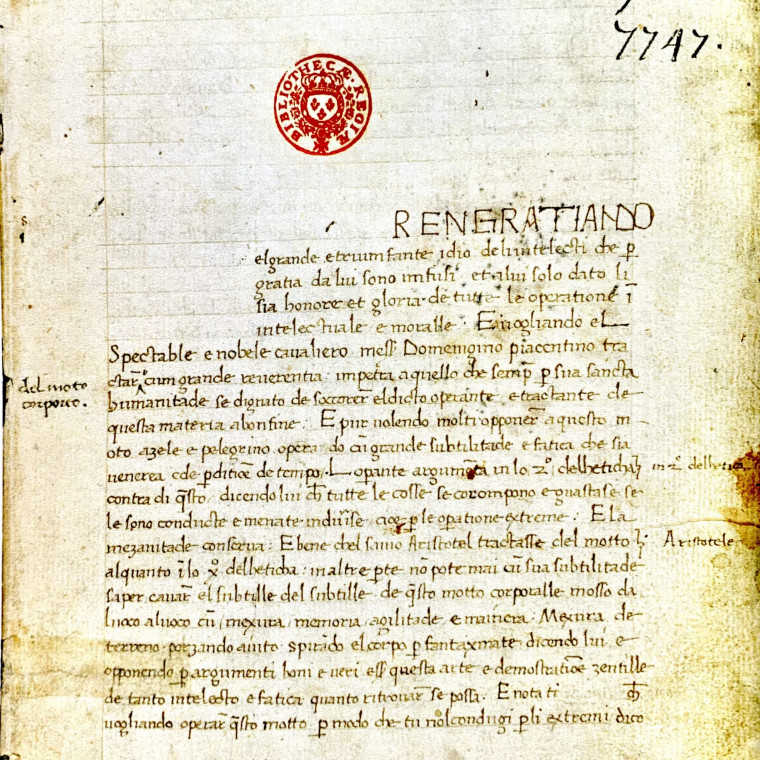 7747.
BIBLIOTHECÆ REGIÆ
RENGRATIANDO
el grande e triumfante idio deli intelecti che p̄
gratia da lui sono infusi et a lui solo dato li
sia honore et gloria de tutte le operatione ī
intelectuale e moralle : E vogliando el
Spectable e nobele cavaliero mess̄ Domenigino piacentino tra
del moto
corporeo.
ctar cum grande reverentia impetra aquello che semp̄ p̄ sua sancta
humanitade se dignato de socorer el dicto operante e tractante de
questa materia abonfine : E pur volendo molti opponer̄ a questo m
oto azele e pelegrino operado cū grande subtilitade e fatica che sia
venerea e de p̄ditiōe de tempo. L operante argumēta in lo 2º delheticha
in 2º delhetica
contra di q̄sto dicendo lui ch̄ tutte le cosse se corompono e guastase se
le sono conducte e menate p̄ le opatione extreme : E la
mezanitade conserva : E bene chel savio Aristotel tractasse del motto
Aristotele
alquanto ī lo delheticha : in altre p̄te nō pote mai cū sua subtilitade
saper cavar̄ el subtille del subtille de q̄sto motto corporalle mosso da
luoco a luoco cū mexura memoria agilitade e mainera. Mexura de
terreno porzando aiuto spirādo el corpo p̄ fantaxmate dicendo lui e
opponendo p̄ argumenti boni e veri ess̄ questa arte e demostratiōe zentille
de tanto intelecto e fatica quanto ritrovar̄ se possa. E nota ti ch̄
vogliando operar̄ q̄sto motto p̄ modo che tu nol condugi p̄ li extremi dico